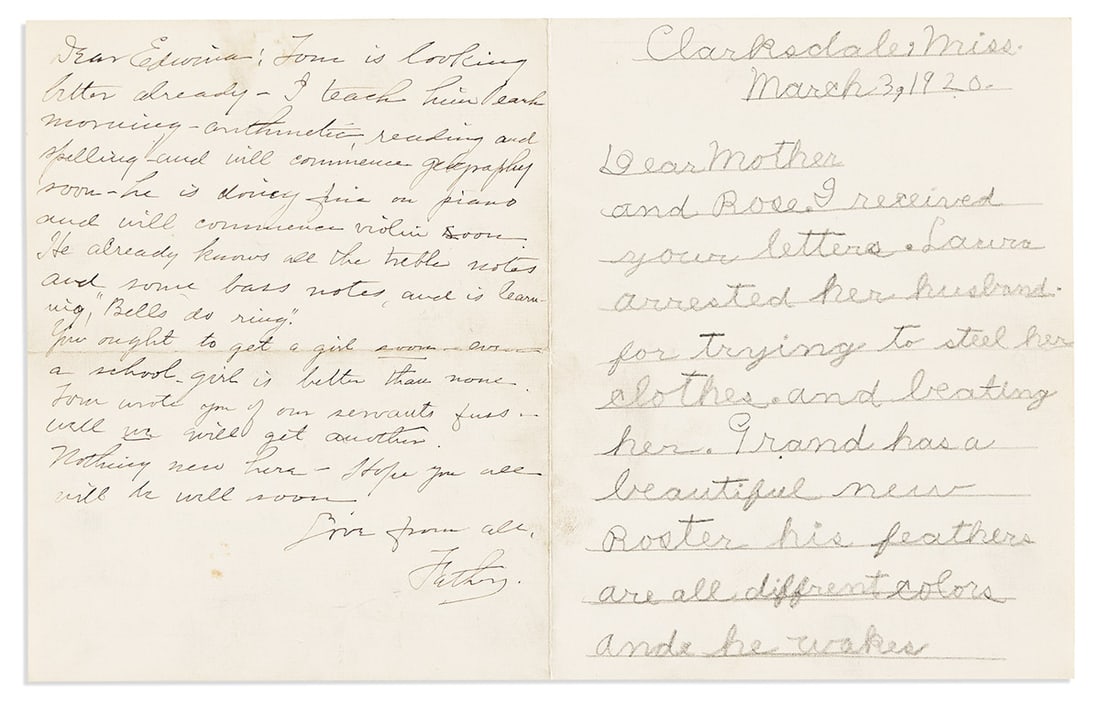 Dear Edwina: Tom is looking
better already - I teach him each
morning - arithmetic, reading and
spelling - and will commence geography
soon - he is doing fine on piano
and will commence violin soon.
He already knows all the treble notes
and some bass notes, and is learn-
ing, "Bells do ring".
You ought to get a girl soon - even
a school-girl is better than none.
Tom wrote you of our servants fuss -
well we will get another.
Nothing new here - Hope you all
will be well soon
Love from all,
Father.
Clarksdale, Miss.
March 3, 1920.
Dear Mother
and Rose. I received
your letters. Laura
arrested her husband.
for trying to steel her
clothes. and beating
her. Grand has a
beautiful new
Roster his feathers
are all diffrent colors
ande he wakes